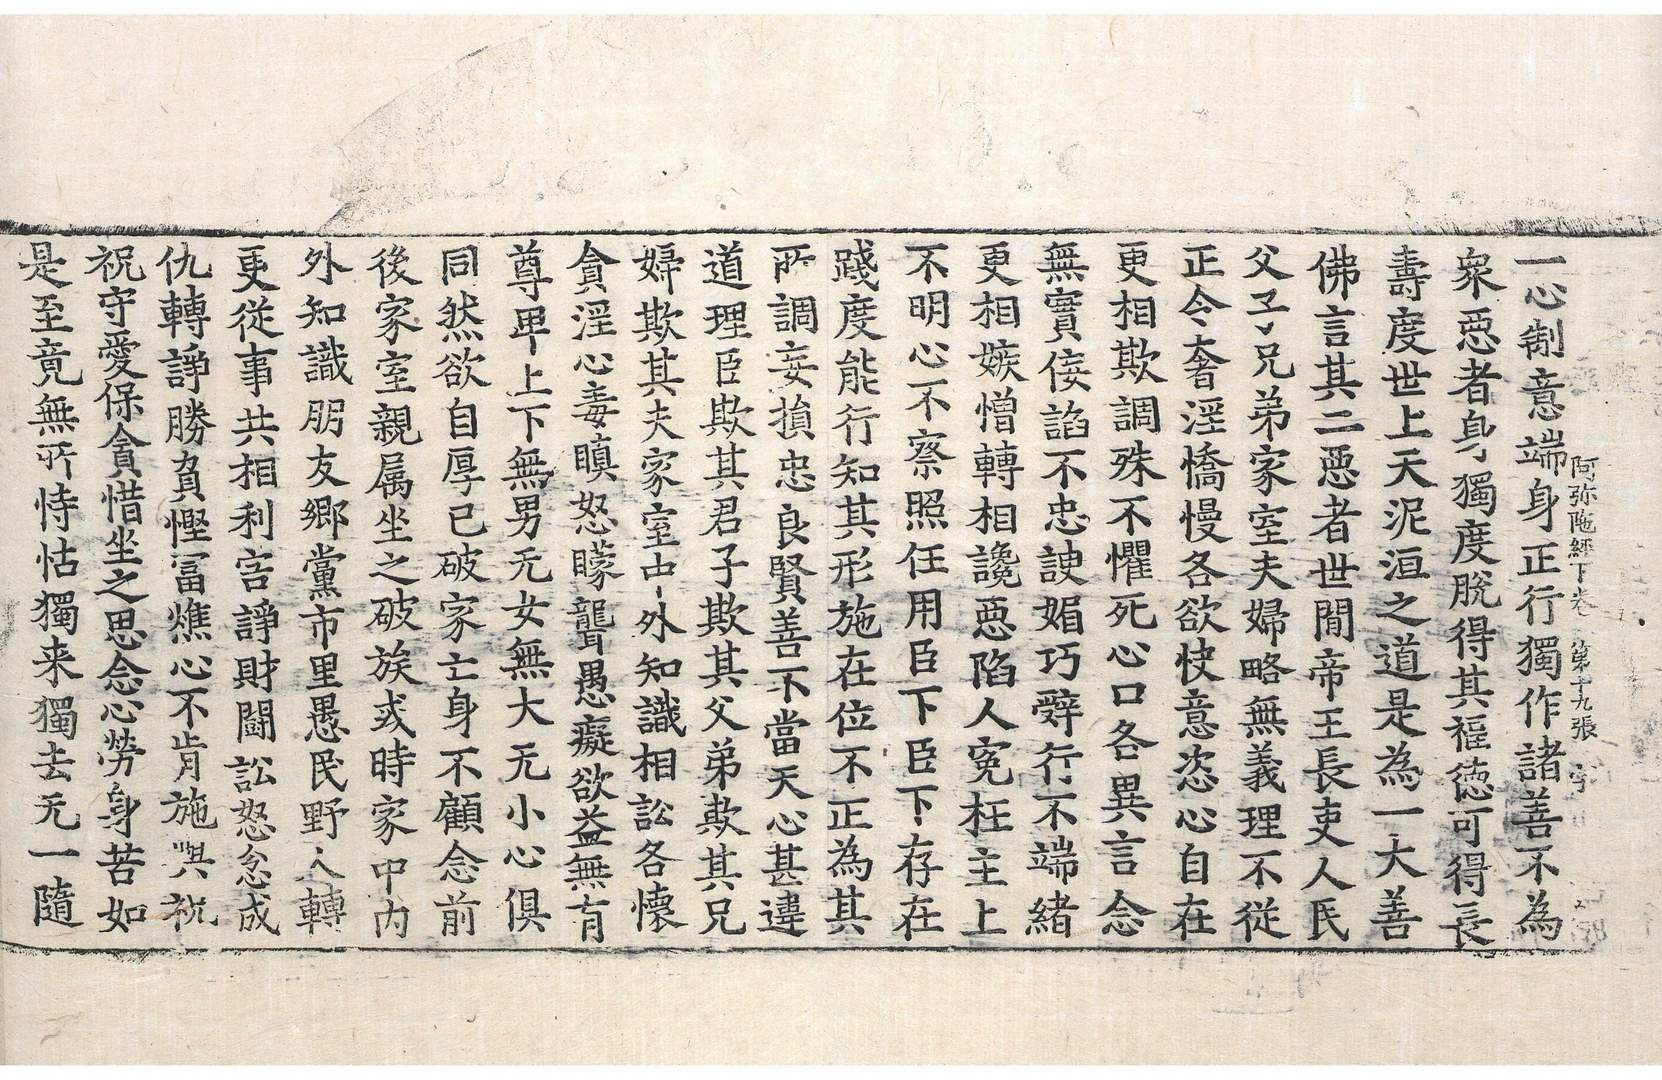 阿弥陁經下卷 第十九張
一心制意端身正行獨作諸善不為
衆惡者身獨度脫得其福德可得長
壽度世上天泥洹之道是為一大善
佛言其二惡者世閒帝王長吏人民
父子兄弟家室夫婦略無義理不從
正令奢淫憍慢各欲快意恣心自在
更相欺調殊不懼死心口各異言念
無實佞諂不忠諛媚巧辭行不端緒
更相嫉憎轉相讒惡陷人寃枉主上
不明心不察照任用臣下臣下存在
踐度能行知其形施在位不正為其
所調妄損忠良賢善不當天心甚違
道理臣欺其君子欺其父弟欺其兄
婦欺其夫家室中外知識相訟各懷
貪淫心毒瞋怒矇聾愚癡欲益無有
尊卑上下無男无女無大无小心俱
同然欲自厚己破家亡身不顧念前
後家室親属坐之破族或時家中内
外知識朋友鄉黨市里愚民野人轉
更從事共相利害諍財鬪訟怒忿成
仇轉諍勝負慳富燋心不肯施與祝
祝守愛保貪惜坐之思念心勞身苦如
是至竟無所恃怙獨来獨去无一隨